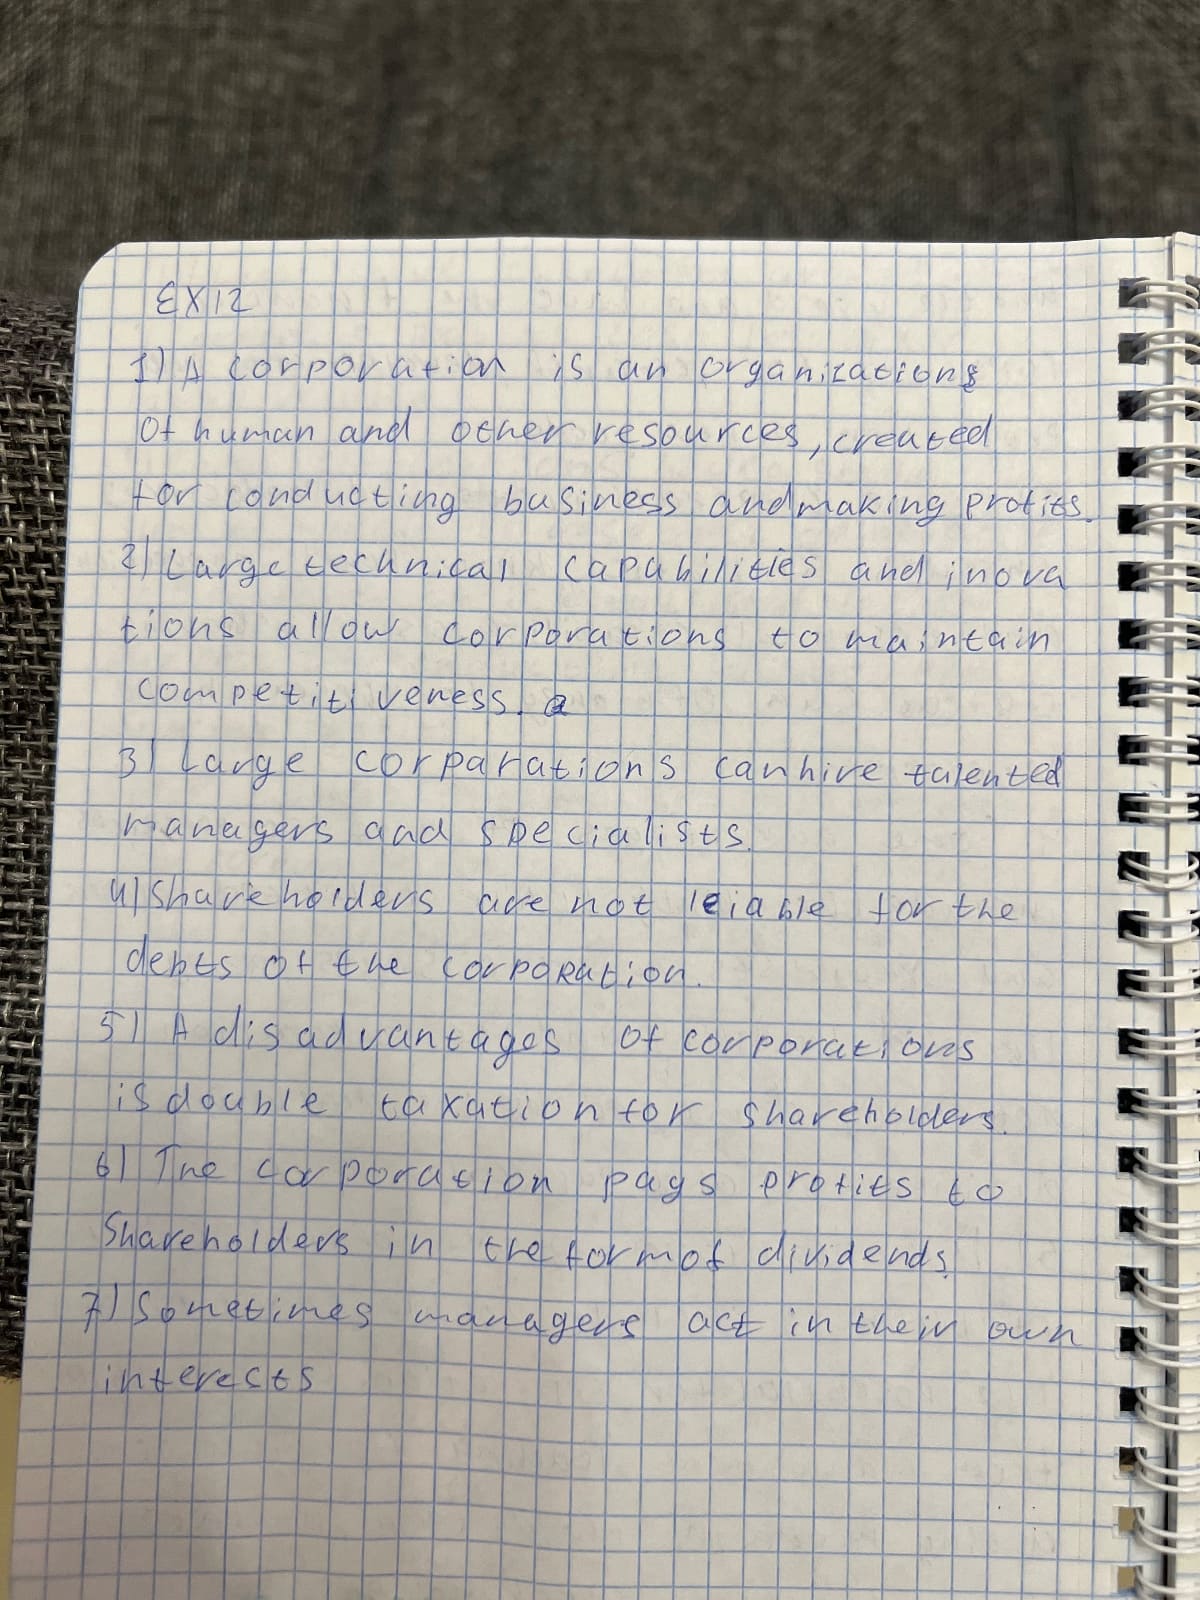 EX12
1) A corporation is an organizations
of human and other resources, created
for conducting business and making profits.
2) Large technical capabilities and inova
tions allow corporations to maintain
competitiveness.
3) Large corparations can hire talented
managers and specialists.
4) Shareholders are not leiable for the
debts of the corporation.
5) A disadvantages of corporations
is double taxation for shareholders.
6) The corporation pays profits to
Shareholders in the form of dividends.
7) Sometimes managers act in their own
interests